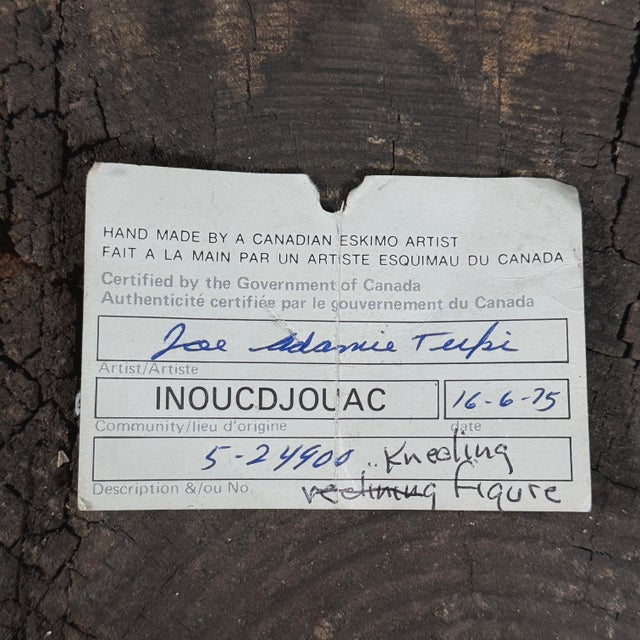 HAND MADE BY A CANADIAN ESKIMO ARTIST
FAIT A LA MAIN PAR UN ARTISTE ESQUIMAU DU CANADA
Certified by the Government of Canada
Authenticité certifiée par le gouvernement du Canada
Joe Adamie Tupi
Artist/Artiste
INOUCDJOUAC 16-6-75
Community/lieu d'origine date
5-24900 .. Kneeling
Description &/ou No. reclining figure